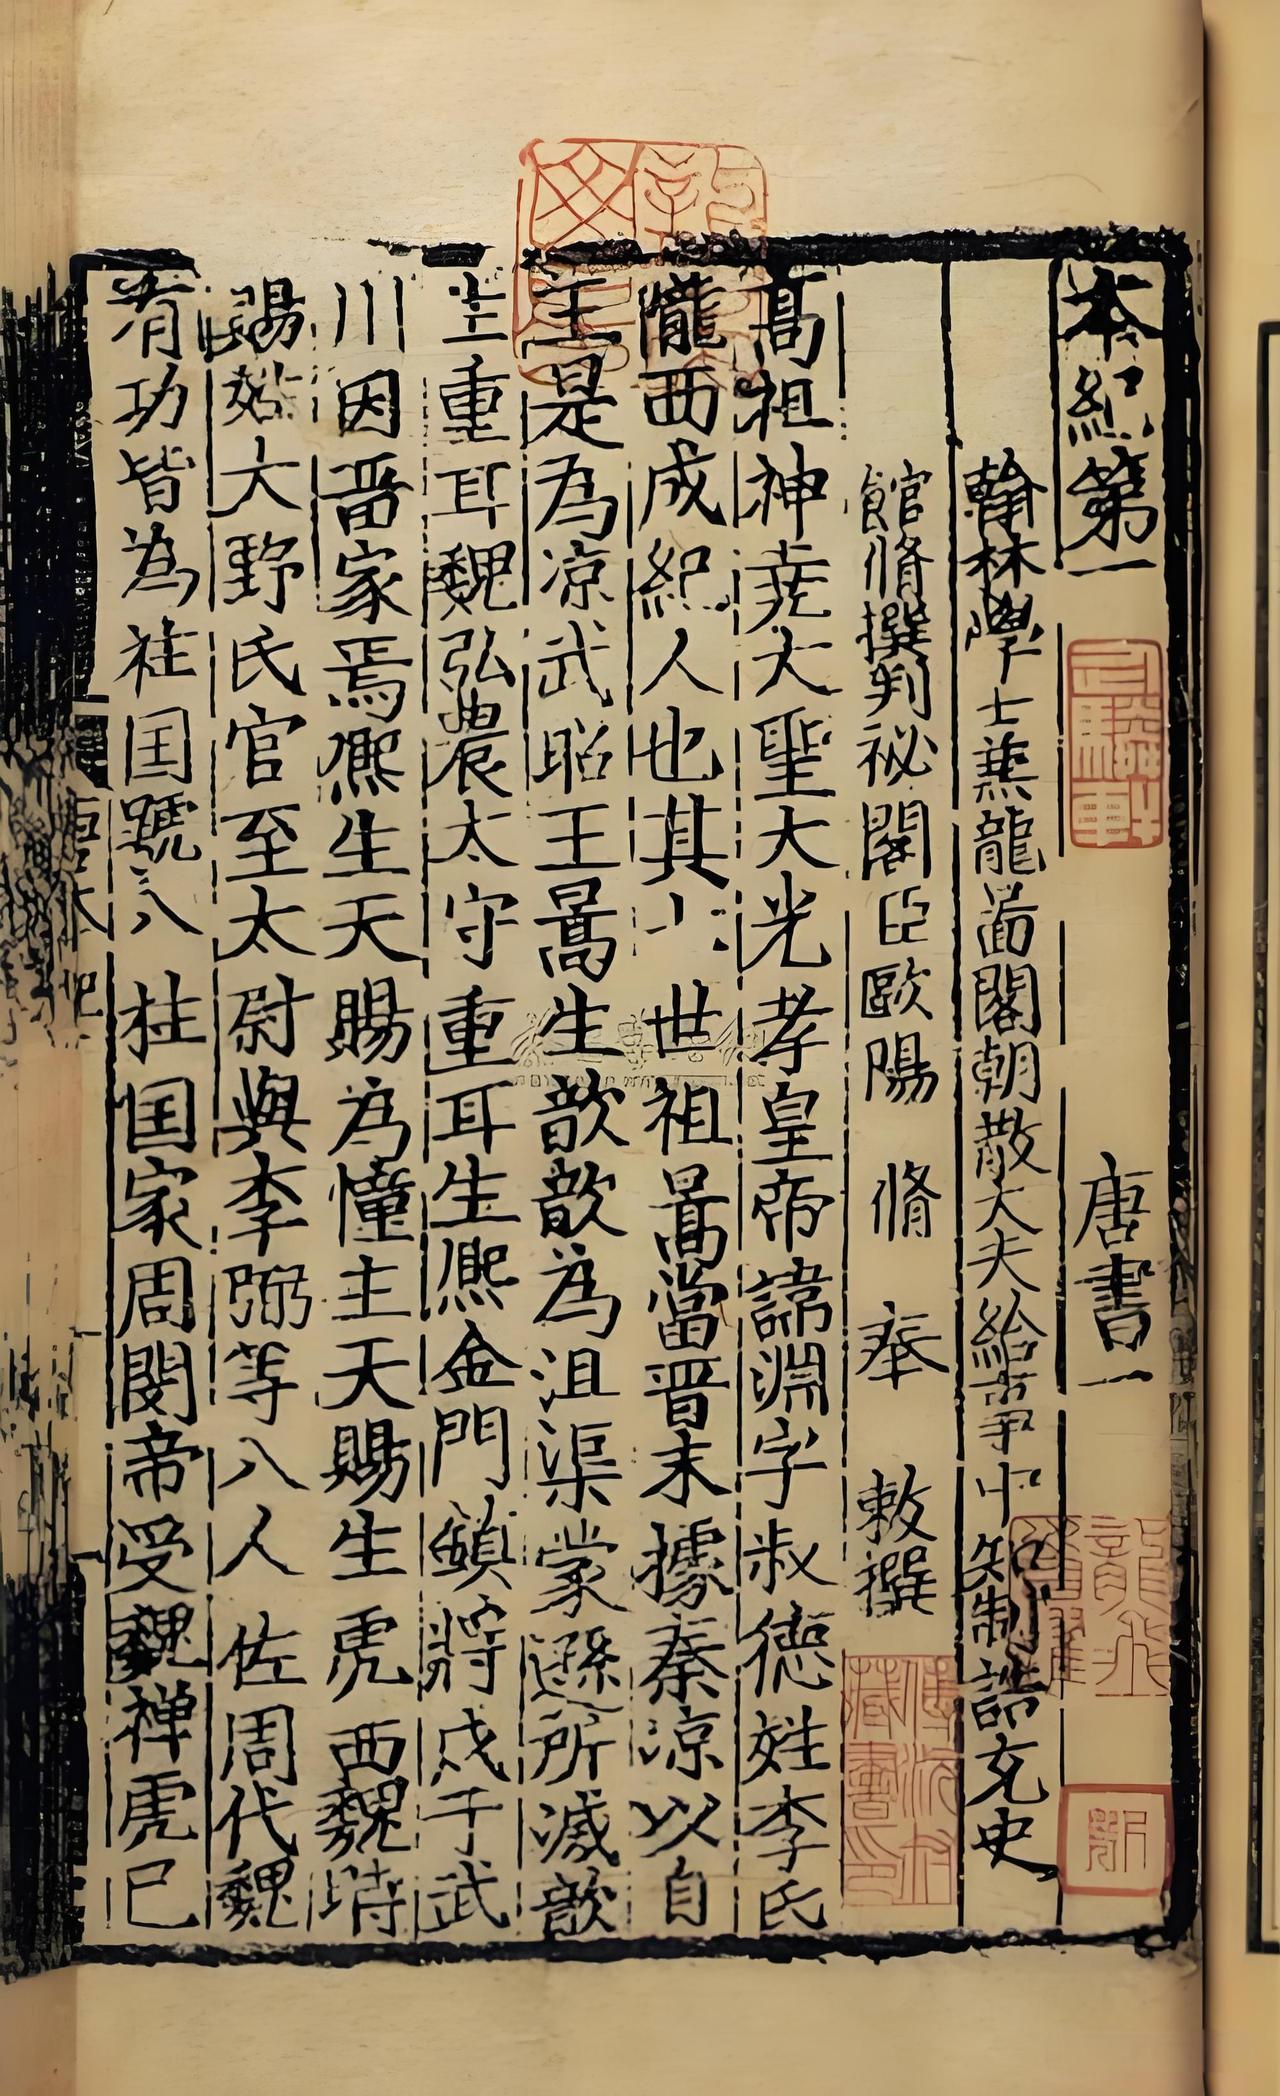 本紀第一 唐書一
翰林學士兼龍啚閣朝散大夫給事中知制誥充史
館脩撰判祕閣臣歐陽 脩 奉 敕撰
高祖神堯大聖大光孝皇帝諱淵字叔德姓李氏
隴西成紀人也其六世祖暠當晉末據秦涼以自
王是為涼武昭王暠生歆歆為沮渠蒙遜所滅歆
生重耳魏弘農太守重耳生熈金門鎮將戍于武
川因畱家焉熈生天賜為幢主天賜生虎西魏時
賜姓大野氏官至太尉與李弼等八人佐周代魏
有功皆為柱国號八柱国家周閔帝受魏禅虎已